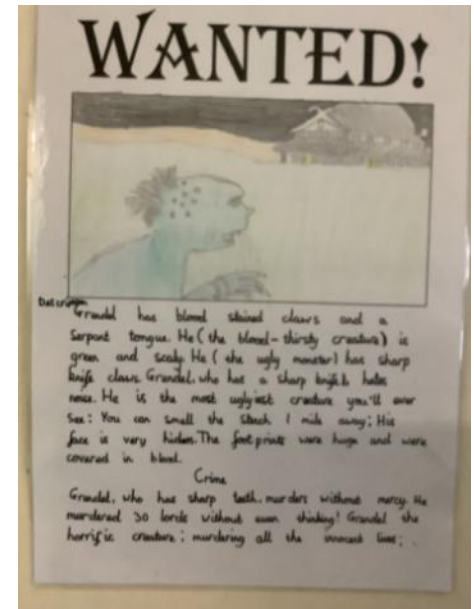 WANTED!
Description
Grendel has blood stained claws and a
Serpant tongue. He (the blood-thirsty creature) is
green and scaly. He (the ugly monster) has sharp
knife claws. Grendel, who has a sharp hates
noise. He is the most uglyiest creature you'll ever
See: You can smell the stench 1 mile away; His
face is very . The footprints were huge and were
covered in blood.
Crime
Grendel, who has sharp teeth, murders without mercy. He
murdered 30 lords without even thinking! Grendel the
horrific creature; murdering all the innocent lives;